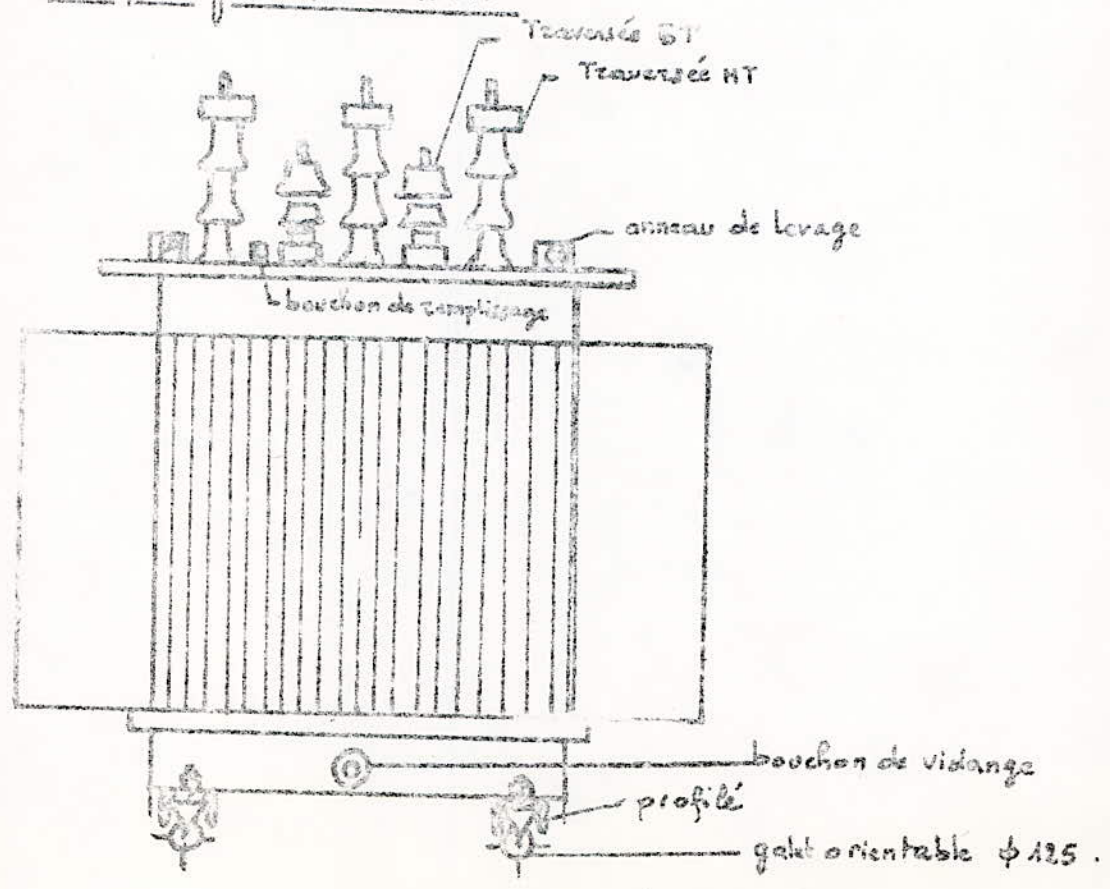 Traversée BT
Traversée HT
anneau de levage
bouchon de remplissage
bouchon de vidange
profilé
galet orientable φ 125 .